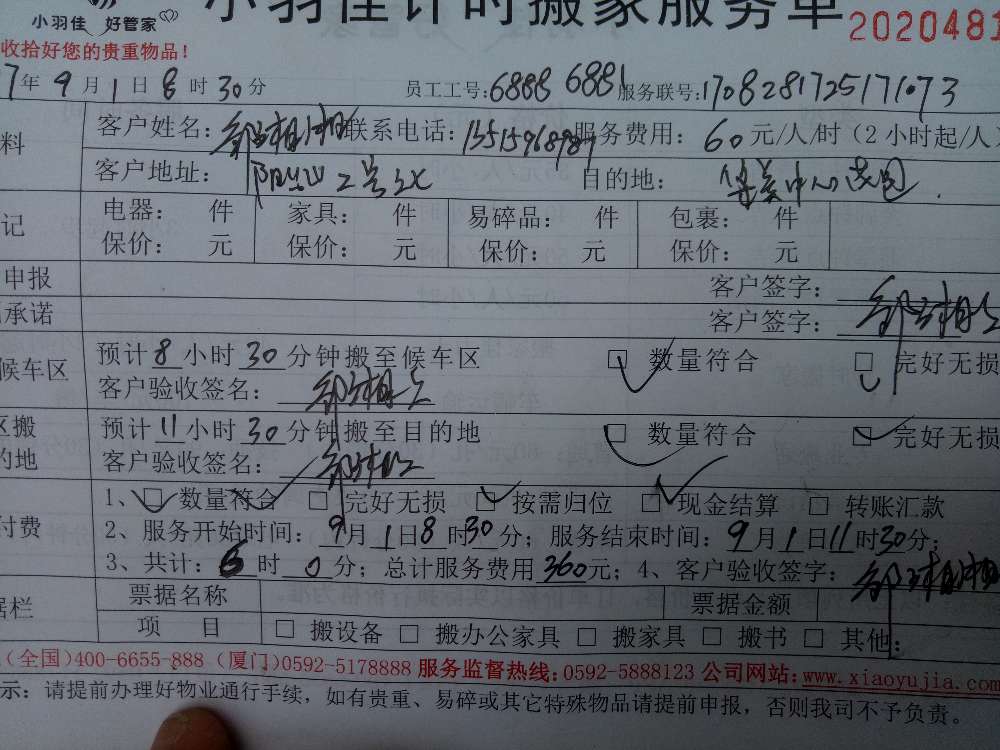 小羽佳 好管家 小羽佳计时搬家服务单 2020481
收拾好您的贵重物品!
7年9月1日8时30分 员工工号:6888 6881 服务联号:170828172517073
料 客户姓名: 联系电话: 服务费用:60元/人/时(2小时起/人
客户地址: 2号 目的地: 中心
记 电器: 件 家具: 件 易碎品: 件 包裹: 件
保价: 元 保价: 元 保价: 元 保价: 元
申报 客户签字:
承诺 客户签字:
候车区 预计8小时30分钟搬至候车区 □ 数量符合 □ 完好无损
客户验收签名:
区搬 预计11小时30分钟搬至目的地 □ 数量符合 □ 完好无损
的地 客户验收签名:
付费 1、□ 数量符合 □ 完好无损 □ 按需归位 □ 现金结算 □ 转账汇款
2、服务开始时间:9月1日8时30分; 服务结束时间:9月1日11时30分;
3、共计:6时0分; 总计服务费用360元; 4、客户验收签字:
据栏 票据名称 票据金额
项 目 □ 搬设备 □ 搬办公家具 □ 搬家具 □ 搬书 □ 其他:
(全国)400-6655-888 (厦门)0592-5178888 服务监督热线:0592-5888123 公司网站:www.xiaoyujia.com
示:请提前办理好物业通行手续,如有贵重、易碎或其它特殊物品请提前申报,否则我司不予负责。